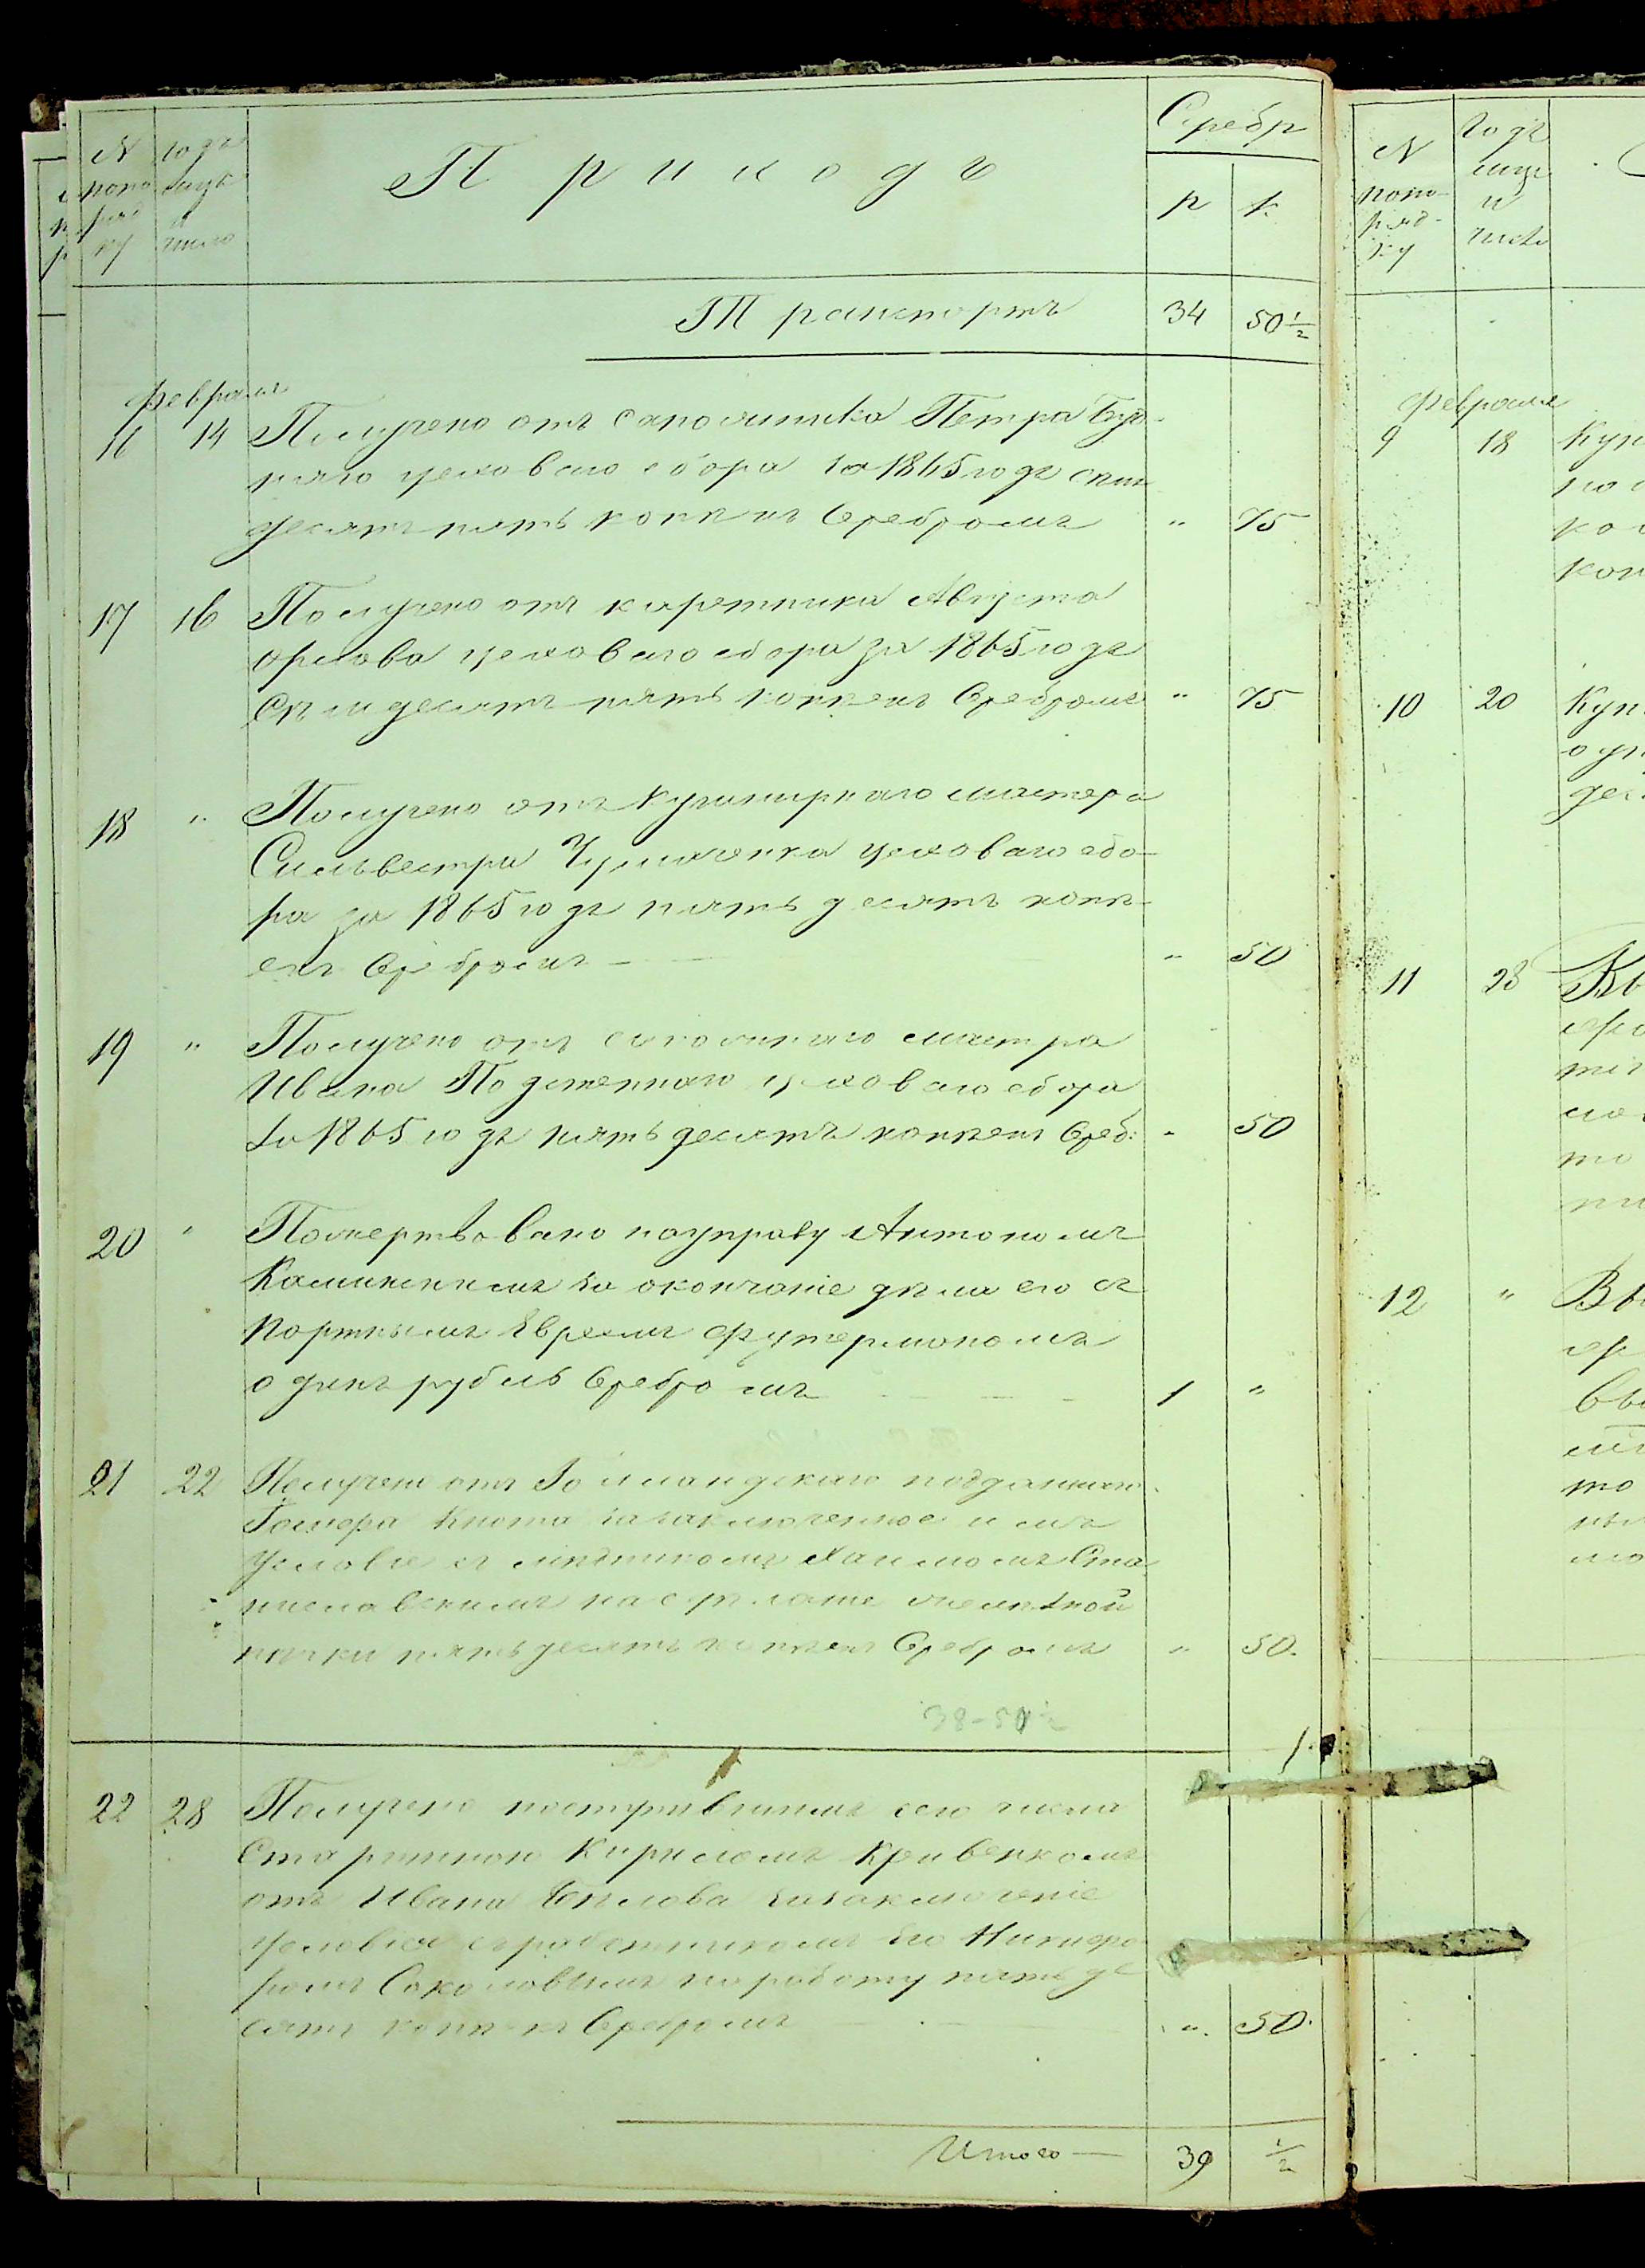 N
попо
ряд
ку
годъ
мцъ
и
число
Приходъ
Серебр
р к
Транспортъ 34 50 1/2
февраля
16 14 Получено отъ сапожника Петра
цеховаго сбора за 1865 годъ
десятъ пять копѣекъ Серебромъ " 75
17 16 Получено отъ каретника Августа
Орлова цеховаго сбора за 1865 годъ
Семидесятъ пять копѣекъ Серебромъ " 75
18 " Получено отъ Кушнирнаго мастера
Сильвестра Чумаченка цеховаго сбо-
ра за 1865 годъ пять десятъ копѣ-
екъ Серебромъ " 50
19 " Получено отъ сапожнаго мастра
Ивана цеховаго сбора
за 1865 годъ пять десятъ копѣекъ Сереб: " 50
20 " Пожертвовано на управу Антономъ
Калининскимъ за окончаніе дѣла его съ
Портнымъ Евреемъ Футермономъ
одинъ рубль Серебромъ 1 "
21 22 Получено отъ Голландскаго подданнаго
Кнота за заключенное имъ
Условіе съ мѣдникомъ Хаимомъ Ста
ниславскимъ
пять десятъ копѣекъ Серебромъ " 50.
38-50 1/2
22 28 Получено поступившимъ сего числа
Старшиною Кириломъ Кривенкомъ
отъ Ивана Бѣлова за заключеніе
Условія съ работникомъ его Никифо
ромъ Соколовымъ на работу пять де
сятъ копѣекъ Серебромъ " 50.
Итого — 39 1/2
N
попо-
ряд-
ку
Годъ
мцъ
и
число
февраля
9 18 Куп
по
ко
коп
10 20 Куп
дес
11 28
то
12 "
то